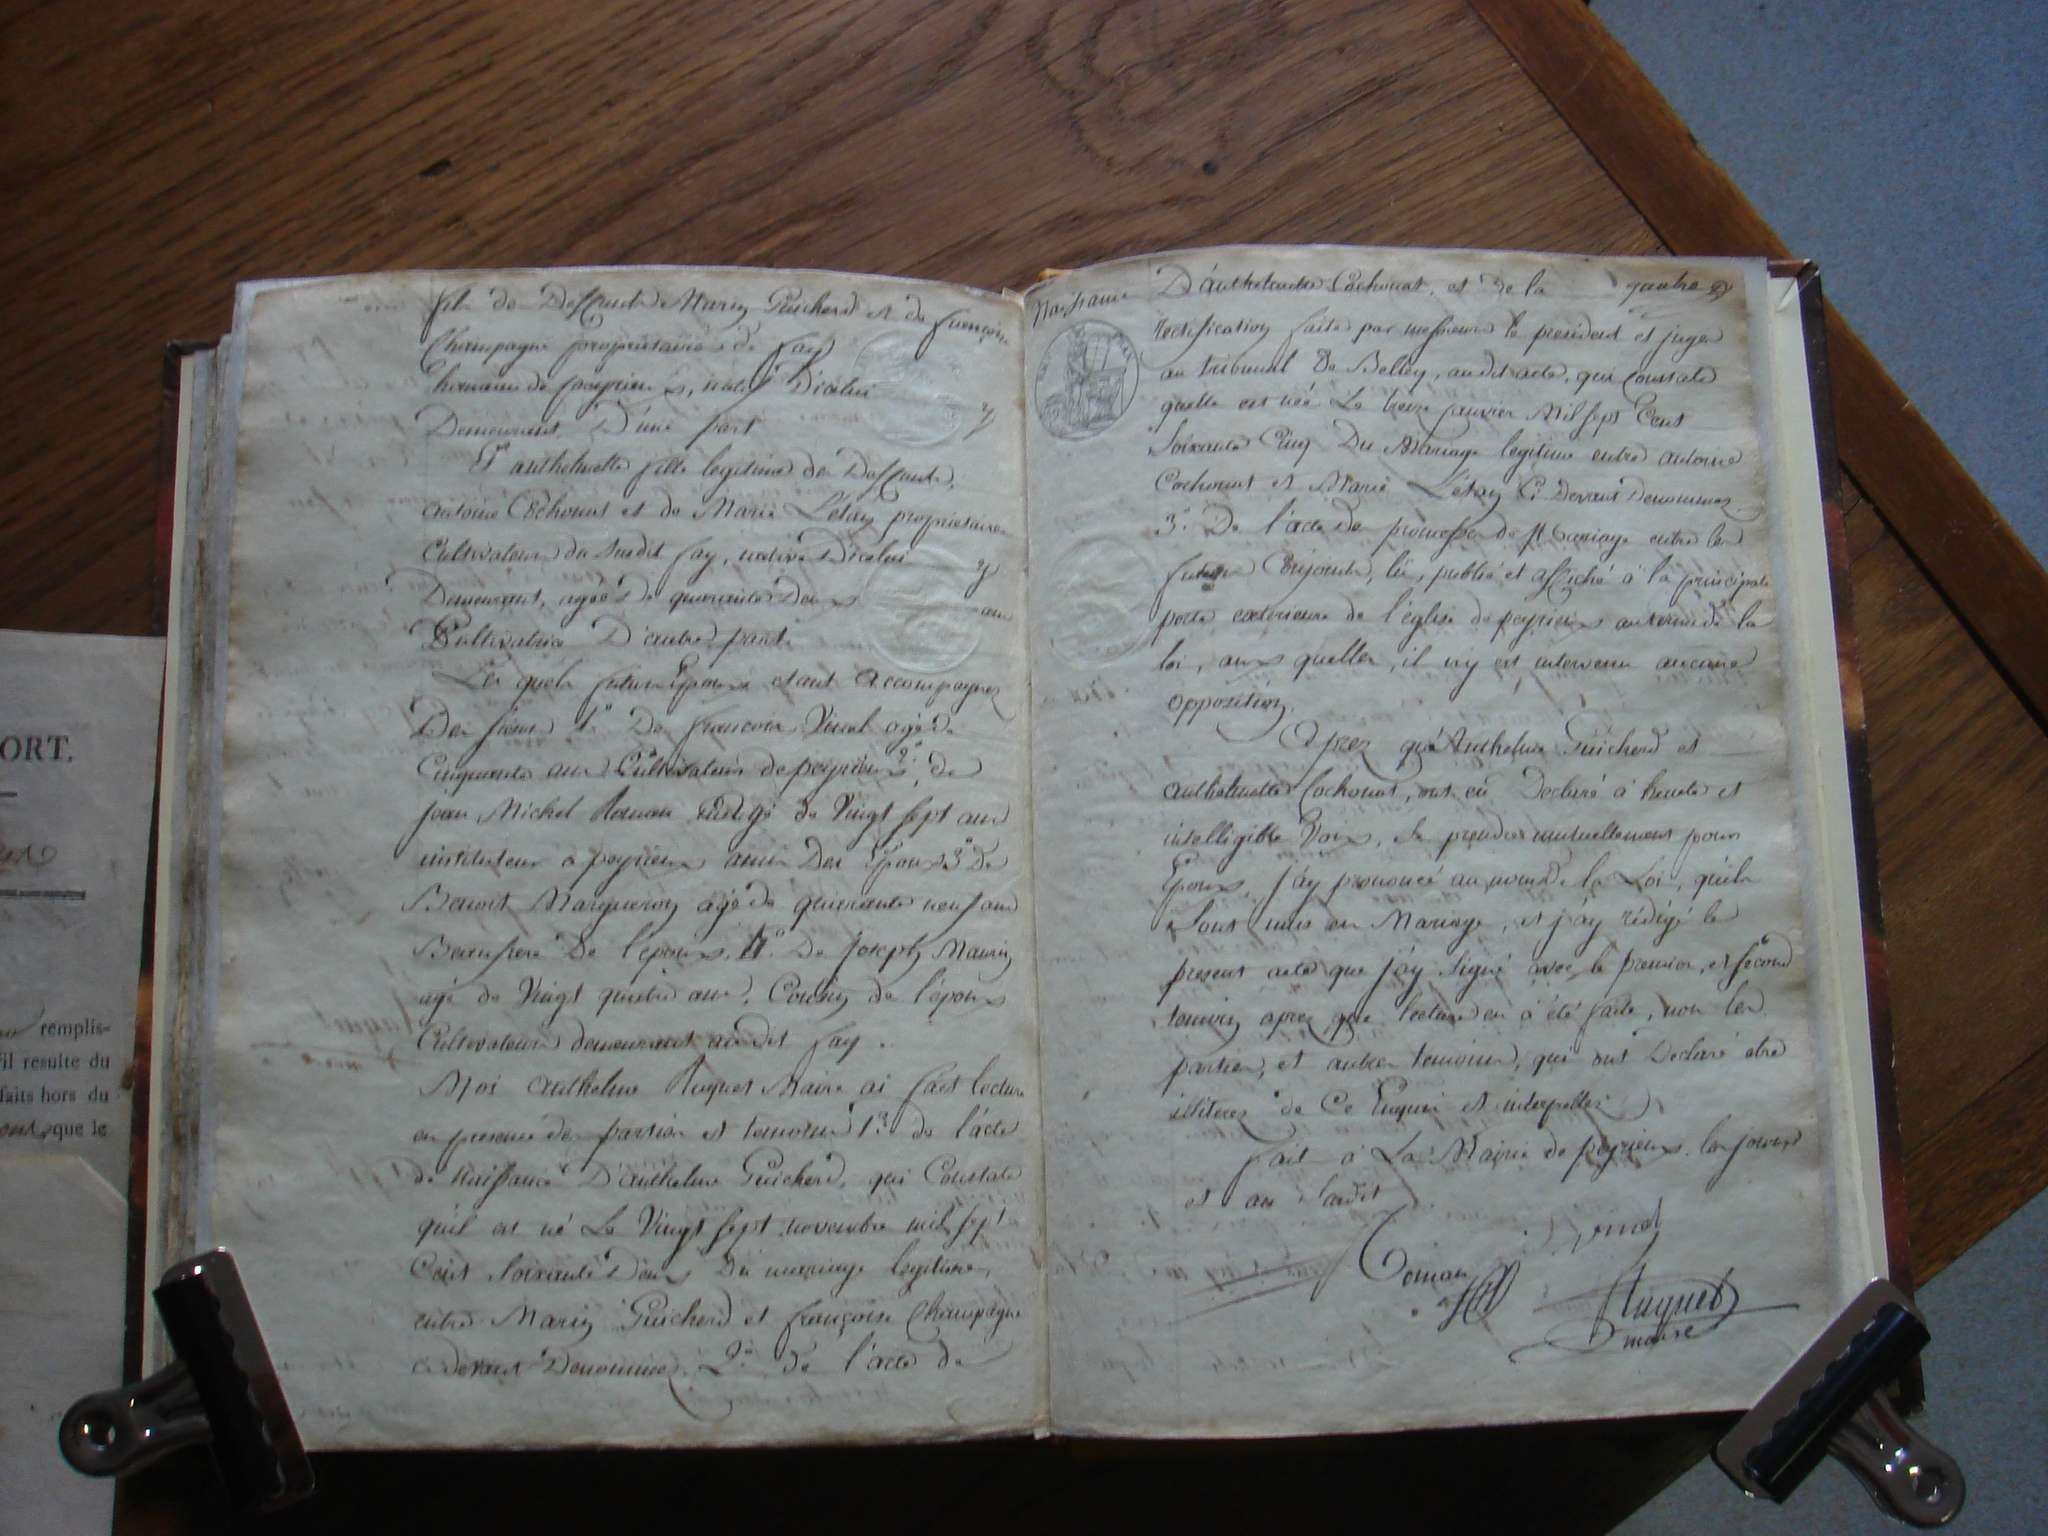 fils de Deffunts Marin Guicherd et de françoise
Champagne propriétaires de fay
hameau de peyrieux, natif D'icelui
Demeurant, D'une part
Et anthelmette fille legitime de Deffunts,
antoine Cochonat et de Marie Létay propriétaires
Cultivateurs du susdit fay, native D'icelui
Demeurant, agée de quarante Deux ans
Cultivatrice D'autre part.
Les quels futurs Epoux etant accompagnez
Des sieurs 1.° De françois Vinel agé de
Cinquante ans Cultivateur de peyrieux 2.° de
jean Michel Roman agé de Vingt sept ans
instituteur a peyrieux amis Des Epoux 3.° De
Benoit Margueron agé de quarante neuf ans
Beaufrere De l'epoux. 4.° De Joseph Maurin
agé de Vingt quatre ans, Cousin de l'époux
Cultivateurs demeurant audit fay.
Moi Anthelme Huguet Maire ai fait lecture
en presence des parties et temoins 1.° de l'acte
de naissance D'anthelme Guicherd, qui Constate
qu'il est né Le Vingt sept novembre mil sept
Cent Soixante Deux Du mariage legitime,
entre Marin Guicherd et françoise Champagne
ci devant Denommez. 2.° de l'acte de
Naissance D'anthelmette Cochonat, et de la quatre
rectification faite par messieurs le president et juges
au tribunal De Belley, audit acte, qui Constate
quelle est née Le treize janvier Mil sept Cent
Soixante Cinq Du Mariage legitime entre antoine
Cochonat et Marie Létay Ci Devant Denommez.
3.° De l'acte de promesse de Mariage entre les
futurs Conjoints, lu, publié et affiché à la principale
porte exterieure de l'église de peyrieux au terme de la
loi, aux quelles, il n'y est intervenu aucune
opposition.
Aprez qu'Anthelme Guicherd et
anthelmette Cochonat, ont eû Declaré à haute et
intelligible Voix, se prendre mutuellement pour
Epoux. J'ay prononcé au nom de la Loi, quils
Sont unis en Mariage, et j'ay rédigé le
present acte que j'ay signé avec le premier, et second
temoin aprez que lecture en à été faite, non les
parties, et autres temoins, qui ont Declaré etre
illiterez de Ce Enquis et interpellez
fait à La Mairie de peyrieux les jours
et an Susdit
Roman
Huguet
maire
ORT.
remplis-
il resulte du
faits hors du
que le